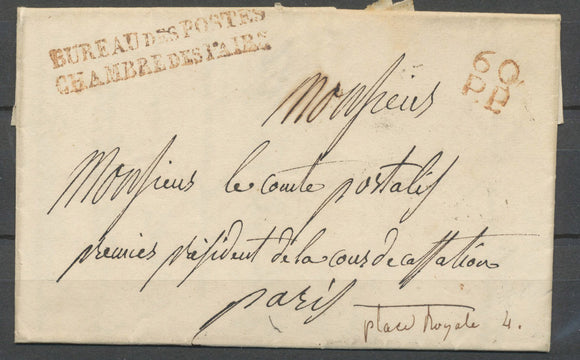 BUREAU DES POSTES
CHAMBRE DES PAIRS
60
P.P.
Monsieur
Monsieur le comte portalis
premier président de la cour de cassation
paris
place Royale 4.